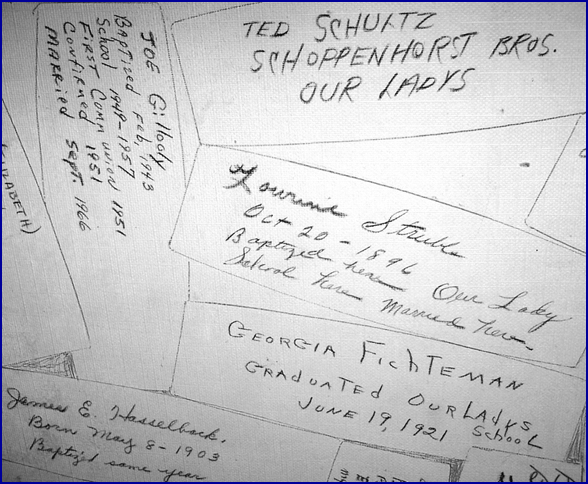 TED SCHULTZ
SCHOPPENHORST BROS.
OUR LADYS
JOE Gilloody
Baptized Feb, 1943
School 1949-1957
First Communion 1951
Confirmed 1951
MARRIED Sept 1966
ELIZABETH)
Lourine Struble
Oct 20 - 1896
Baptized here Our Lady
School here Married here.
GEORGIA FichTEMAN
GRADUATED OUR LADYS
JUNE 19, 1921 SCHOOL
James E. Hasselback.
Born May 8 - 1903
Baptized same year